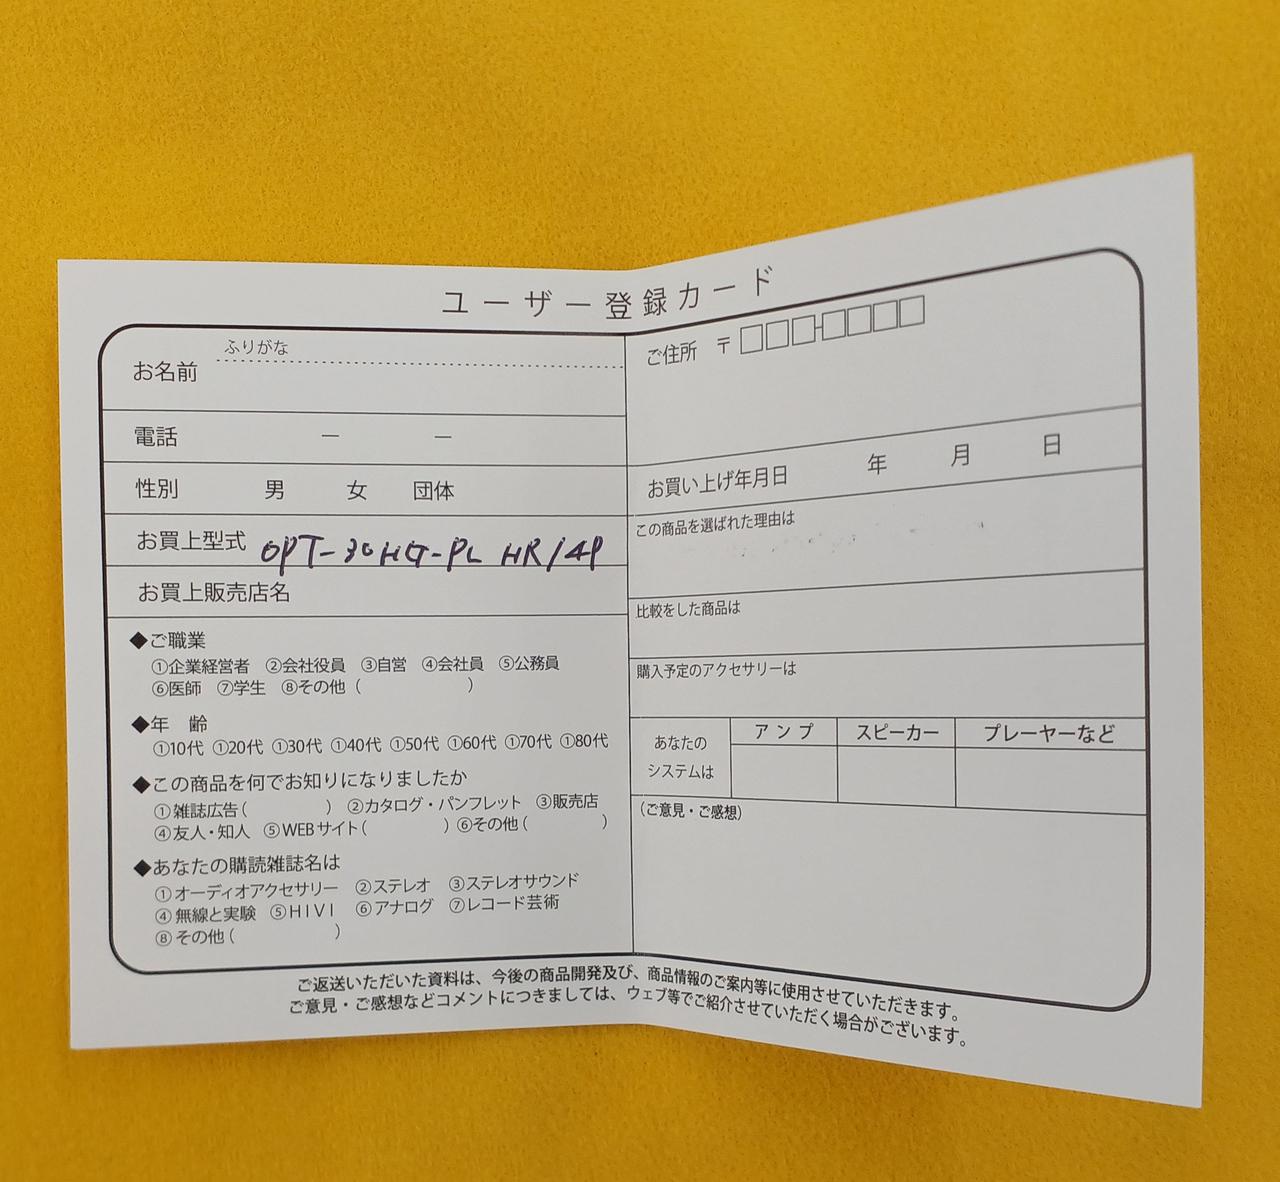 ユーザー登録カード
ふりがな
お名前
電話 ー ー
性別 男 女 団体
お買上型式 OPT-30HG-PL HR/4P
お買上販売店名
◆ご職業
①企業経営者 ②会社役員 ③自営 ④会社員 ⑤公務員
⑥医師 ⑦学生 ⑧その他（ ）
◆年 齢
①10代 ①20代 ①30代 ①40代 ①50代 ①60代 ①70代 ①80代
◆この商品を何でお知りになりましたか
①雑誌広告（ ） ②カタログ・パンフレット ③販売店
④友人・知人 ⑤WEBサイト（ ） ⑥その他（ ）
◆あなたの購読雑誌名は
①オーディオアクセサリー ②ステレオ ③ステレオサウンド
④無線と実験 ⑤HIVI ⑥アナログ ⑦レコード芸術
⑧その他（ ）
ご住所 〒
お買い上げ年月日 年 月 日
この商品を選ばれた理由は
比較をした商品は
購入予定のアクセサリーは
あなたの
システムは
アンプ スピーカー プレーヤーなど
（ご意見・ご感想）
ご返送いただいた資料は、今後の商品開発及び、商品情報のご案内等に使用させていただきます。
ご意見・ご感想などコメントにつきましては、ウェブ等でご紹介させていただく場合がございます。